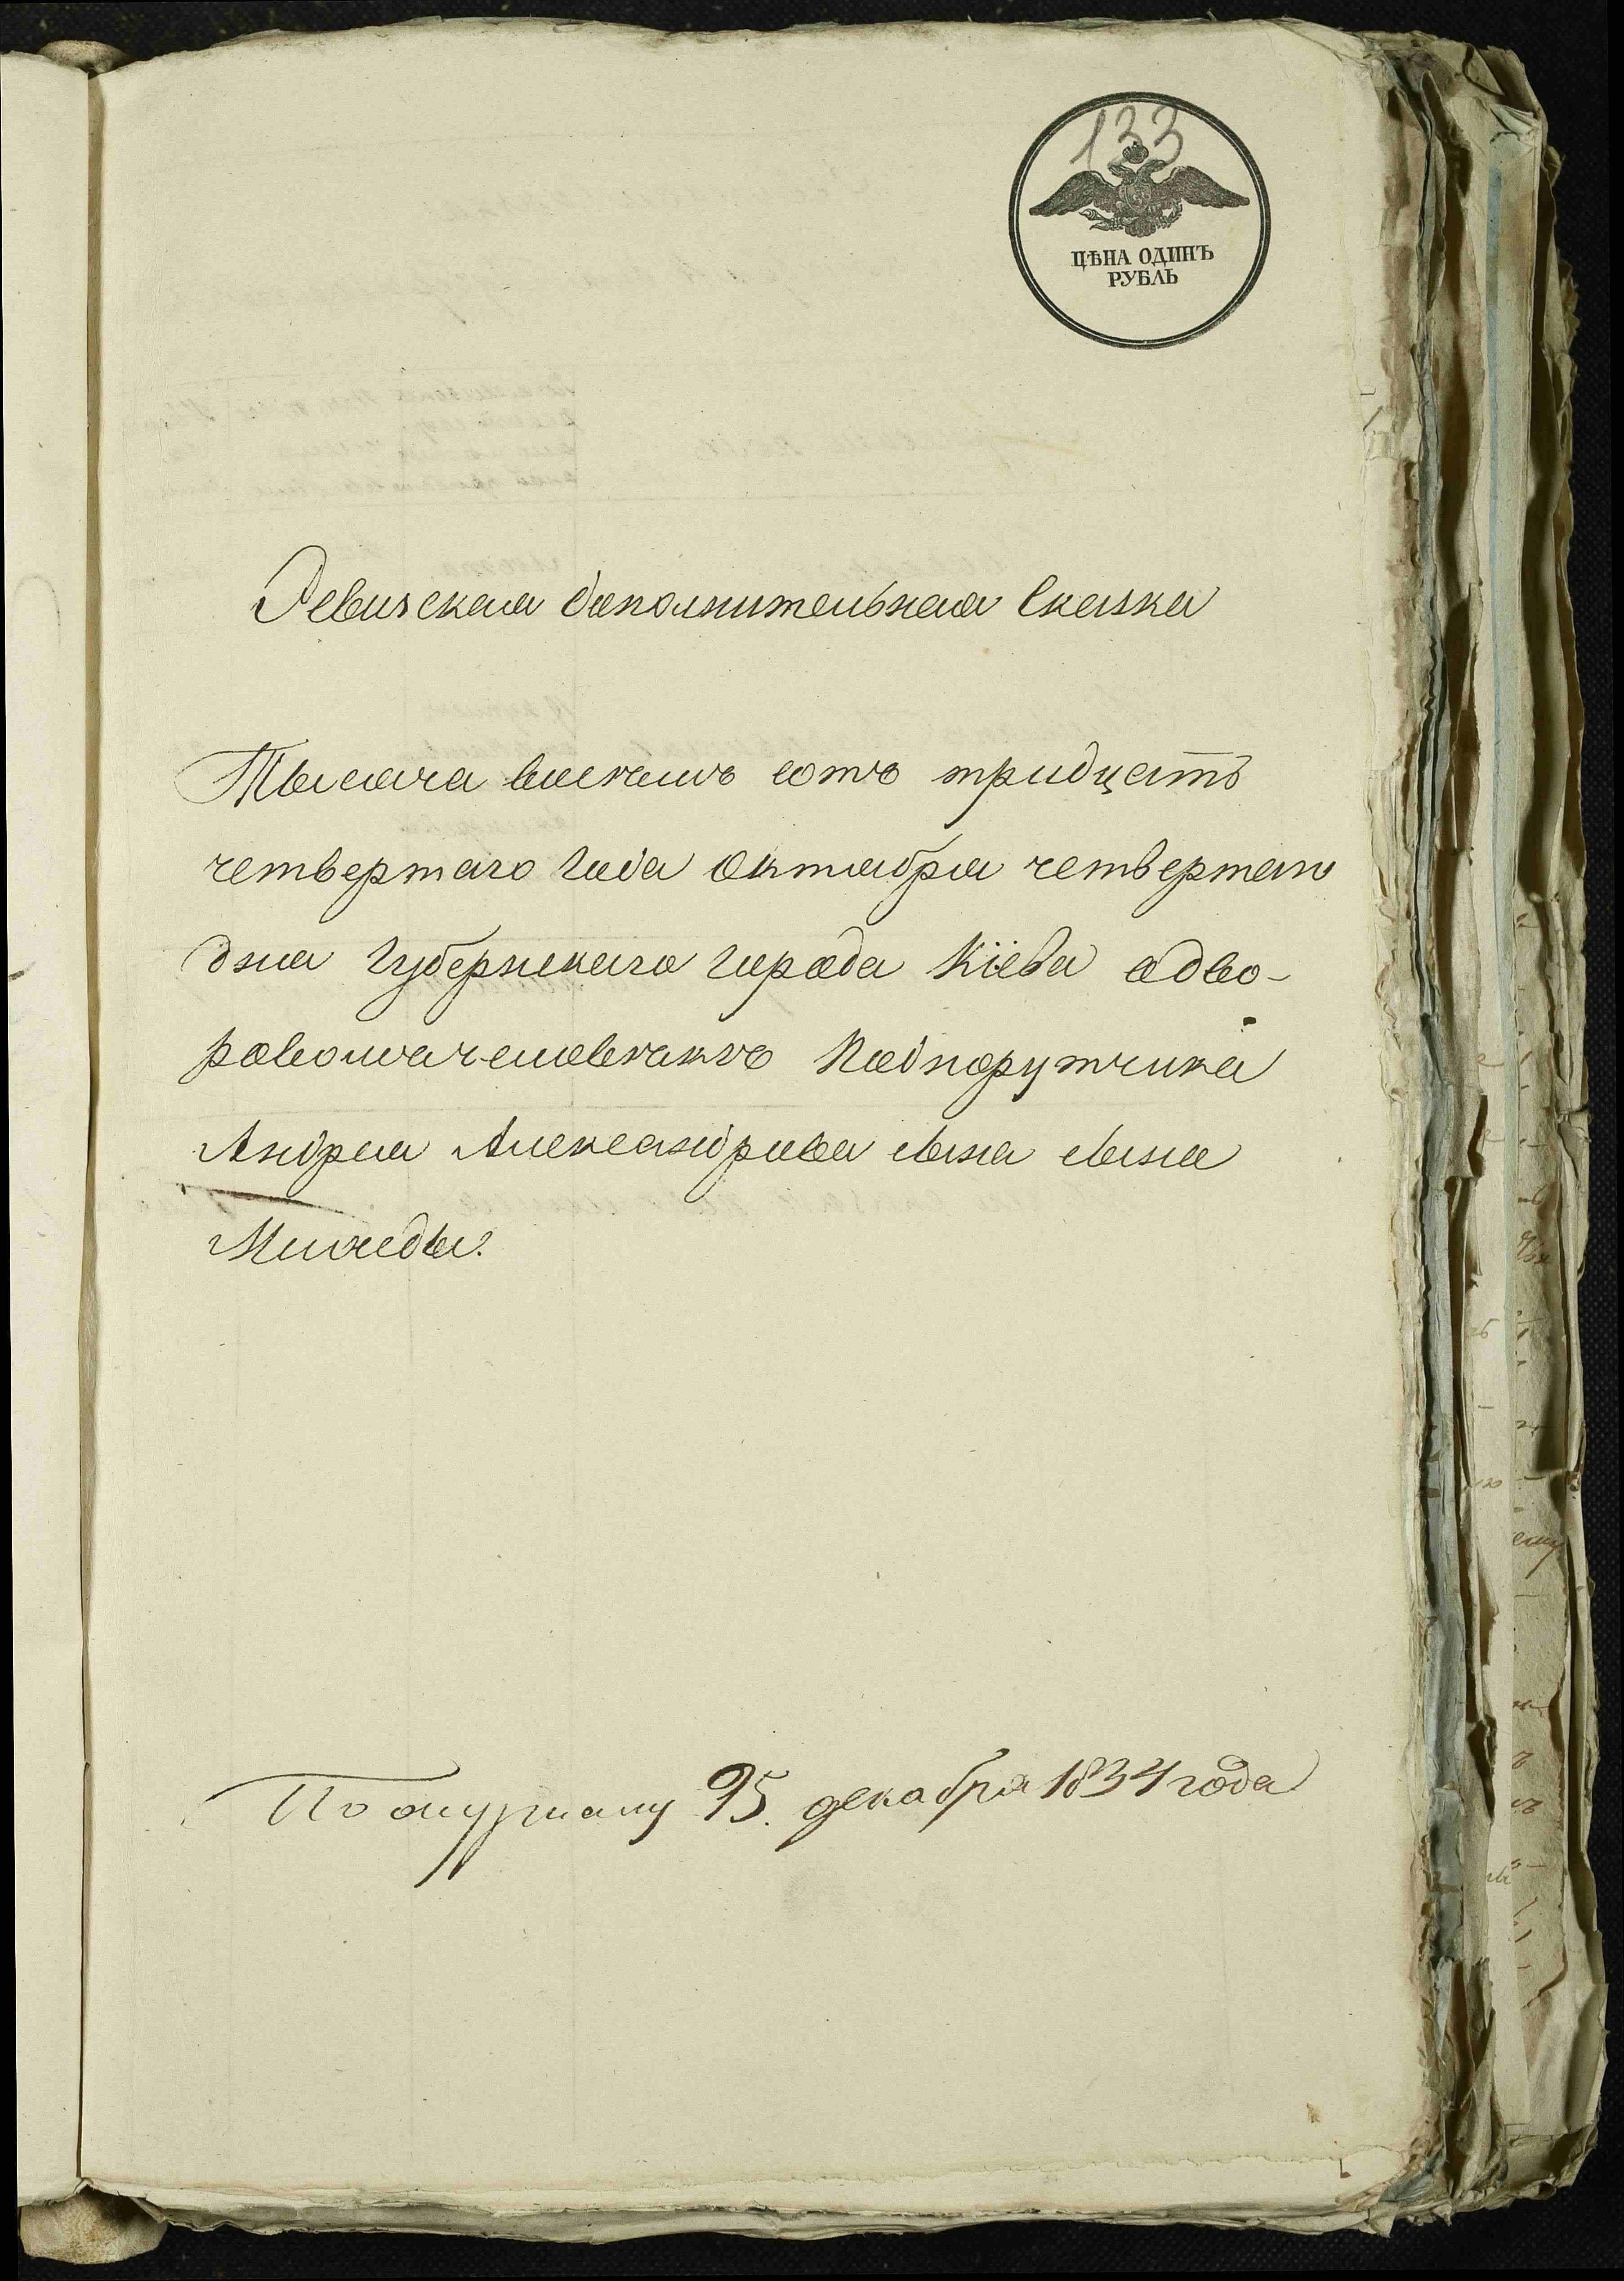 133
ЦѢНА ОДИНЪ
РУБЛЬ
Ревизская дополнительная сказка
Тысяча восемь сотъ тридцать
четвертаго года октября четвертаго
дня Губернскаго города Кіева о дво-
ровомъ человекахъ Подпорутчика
Андрея Александрова сына
По журналу 25. декабря 1834 года